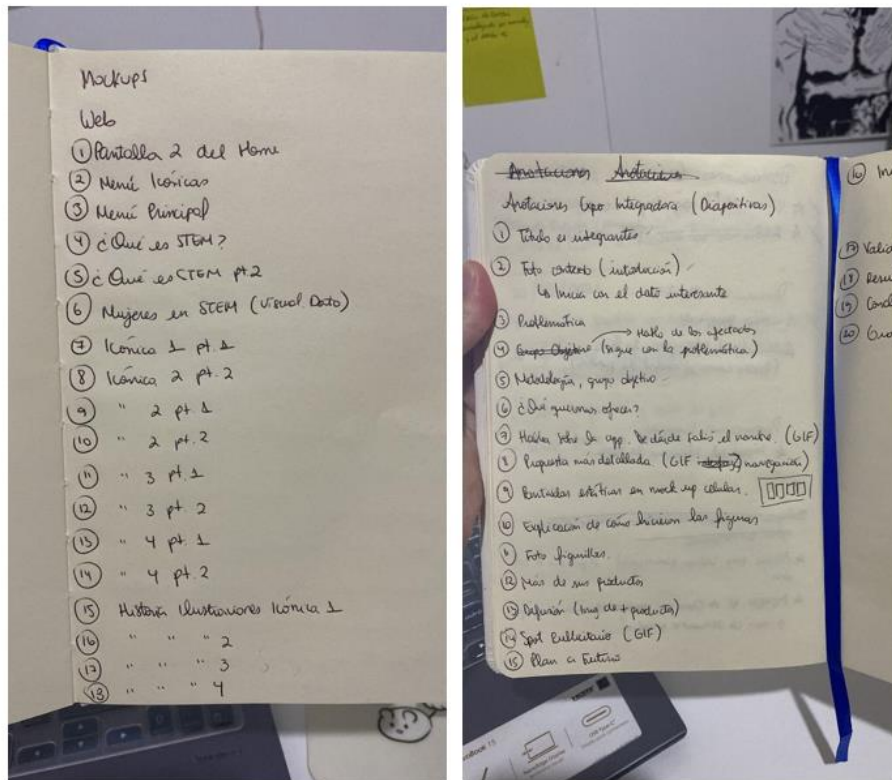 Mockups
Web
① Pantalla 2 del Home
② Menú Icónicas
③ Menú Principal
④ ¿Qué es STEM?
⑤ ¿Qué es STEM pt.2
⑥ Mujeres en STEM (Visual. Dato)
⑦ Icónica 1 pt. 1
⑧ Icónica 2 pt. 2
⑨ " 2 pt 1
⑩ " 2 pt. 2
⑪ " 3 pt. 1
⑫ " 3 pt 2
⑬ " 4 pt. 1
⑭ " 4 pt. 2
⑮ Historia Ilustraciones Icónica 1
⑯ " " " 2
⑰ " " " 3
⑱ " " " 4
Anotaciones Anotaciones
Anotaciones Expo Integradora (Diapositivas)
① Título e integrantes
② Foto contexto (introducción)
↳ Inicia con el dato interesante
③ Problemática
→ Hablo de los afectados
④ Grupo Objetivo (sigue con la problemática)
⑤ Metodología, grupo objetivo
⑥ ¿Qué queremos ofrecer?
⑦ Hablar sobre la app. De dónde salió el nombre. (GIF)
⑧ Propuesta más detallada (GIF navegación)
⑨ Pantallas estáticas en mock up celular.
⑩ Explicación de cómo hicieron las figuras
Foto figurillas.
⑫ Más de sus productos
⑬ Difusión (Img de + productos)
⑭ Spot Publicitario (GIF)
⑮ Plan a Futuro
⑯ In
Valid
⑱ Resu
⑲ Concl
⑳